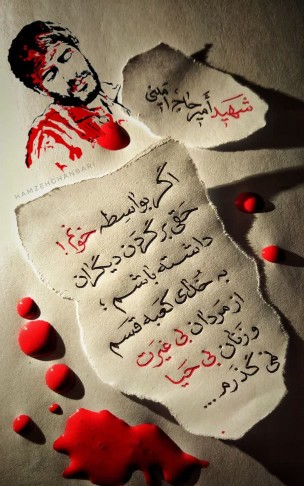 شهید
امیر حاج امینی
HAMZEHGHANBARI
اگر بواسطه خونم!
حقی بر گردن دیگران
داشته باشم؛
به خدای کعبه قسم
از مردان بی غیرت
و زنان بی حیا
نمی گذرم...